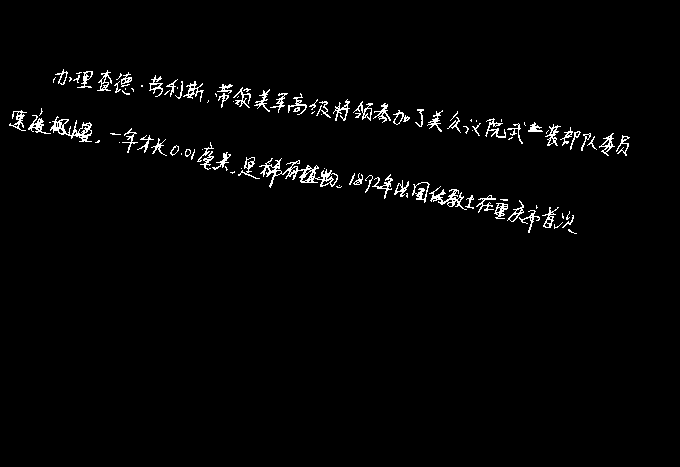 办理查德·劳利斯,带领美军高级将领参加了美众议院武装部队委员
速度极慢,一年才长0.01毫米,是稀有植物。1892年法国传教士在重庆市首次